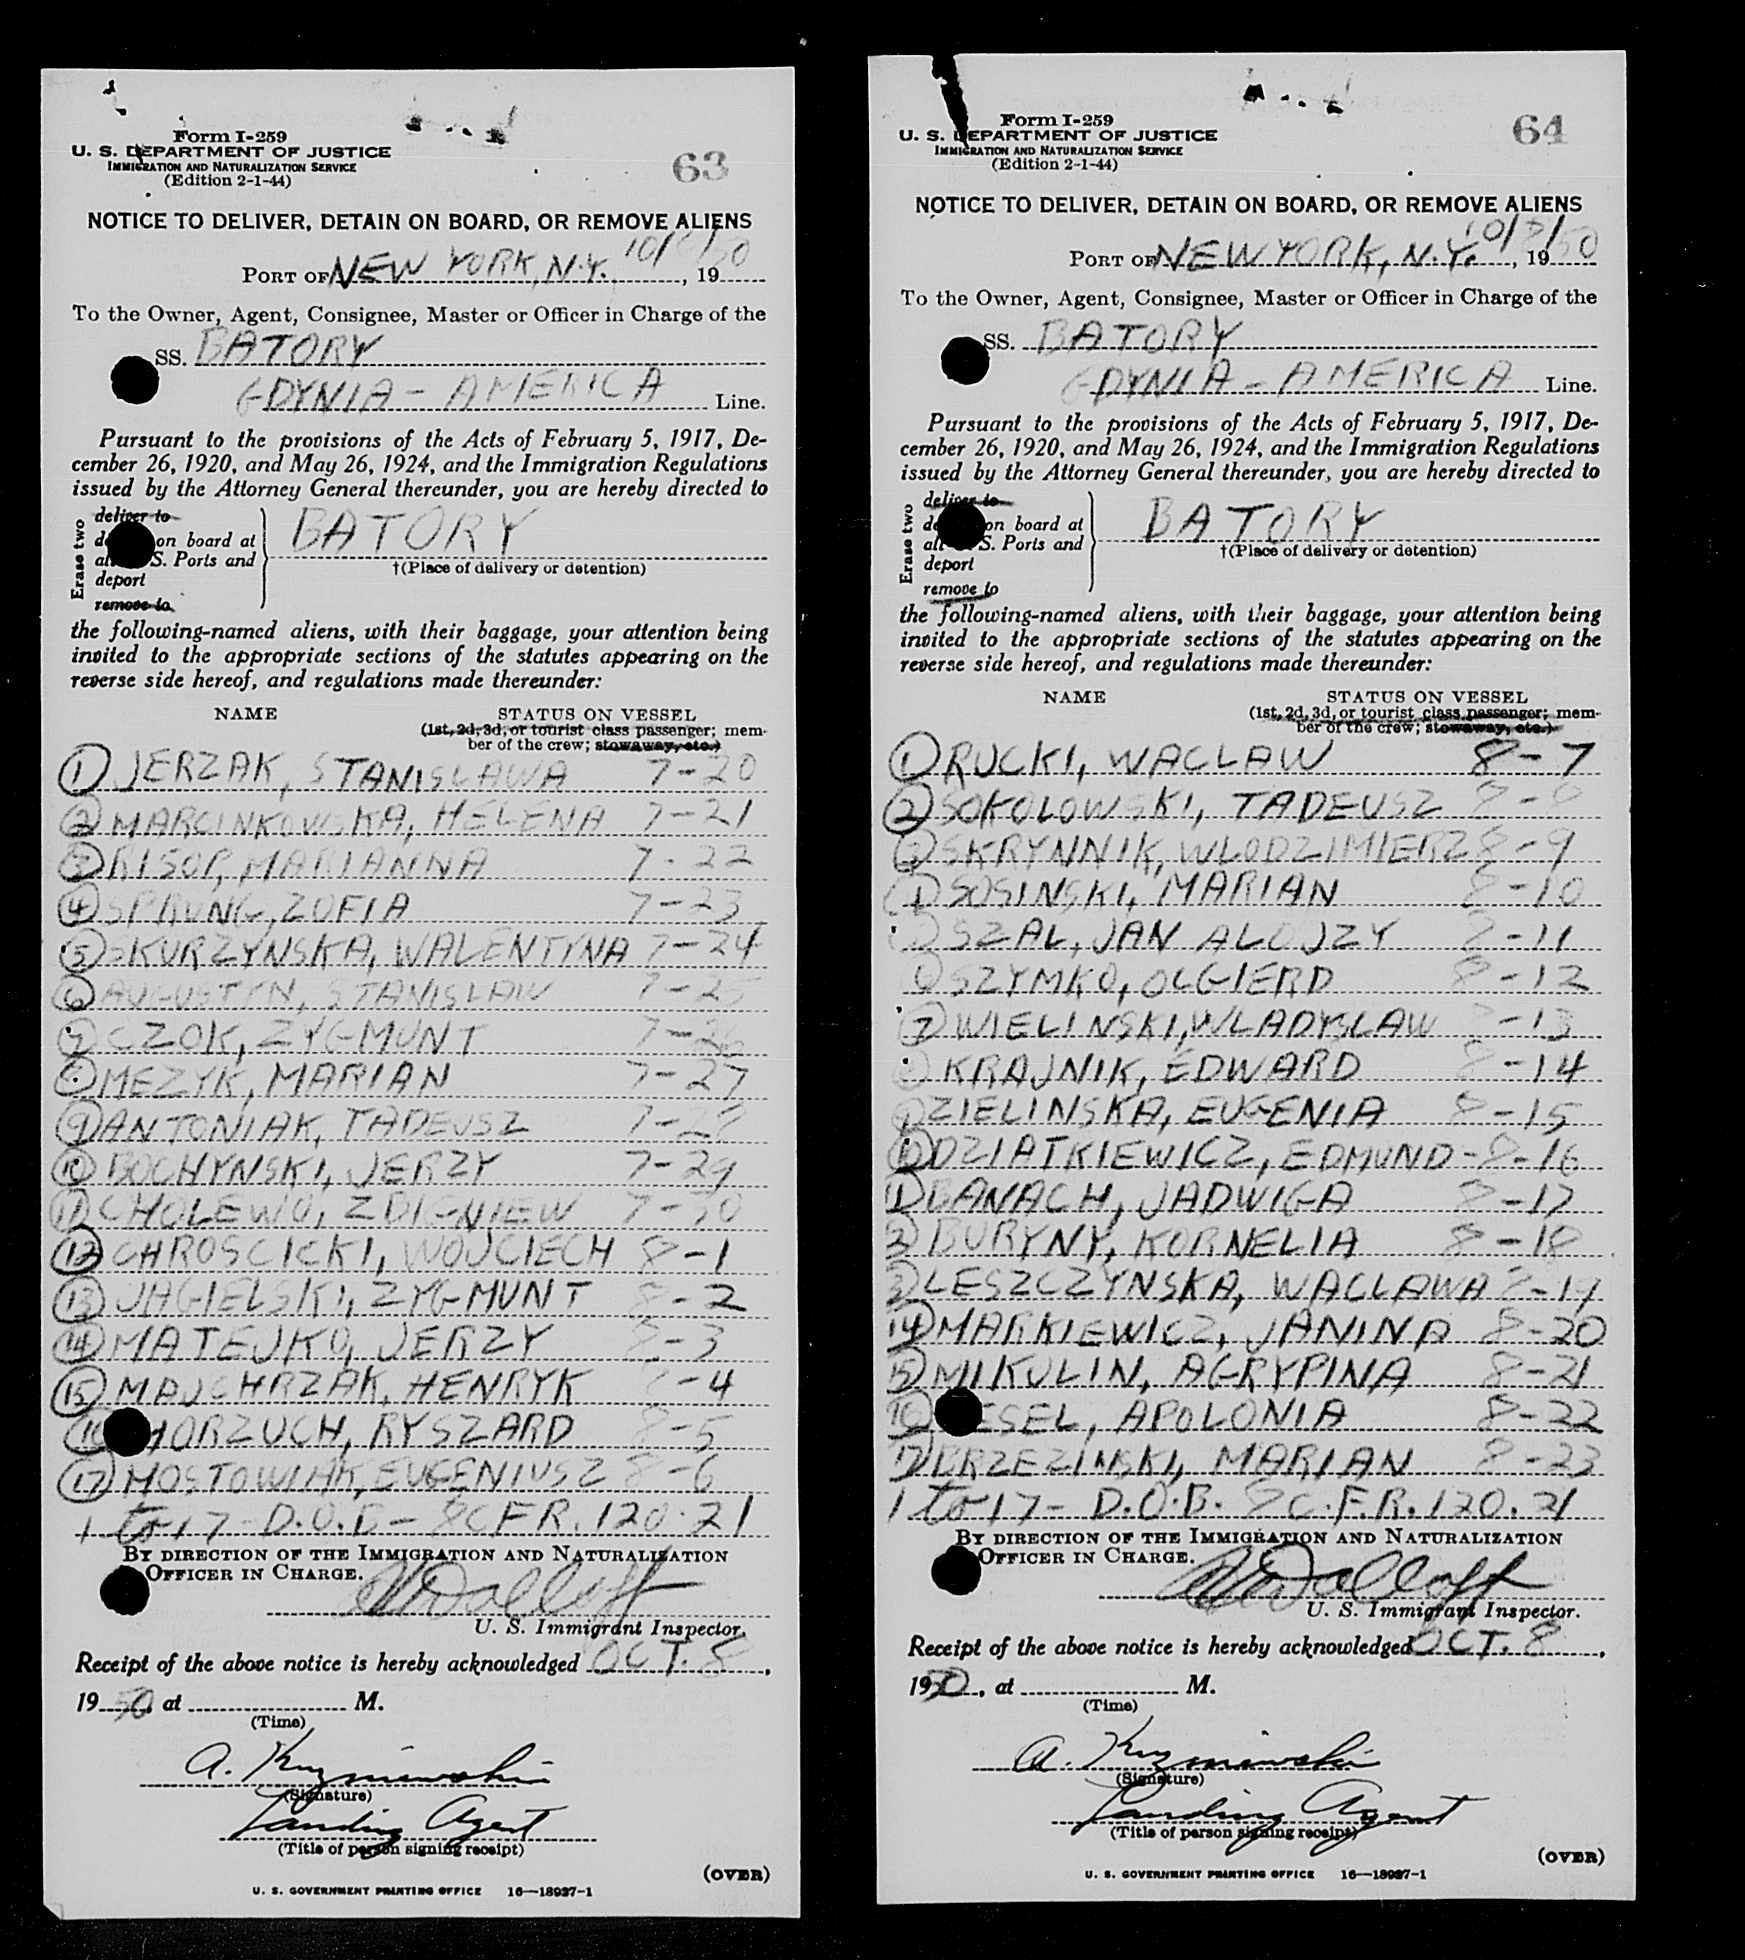 Form I-259
U. S. DEPARTMENT OF JUSTICE
IMMIGRATION AND NATURALIZATION SERVICE
(Edition 2-1-44)
63
NOTICE TO DELIVER, DETAIN ON BOARD, OR REMOVE ALIENS
PORT OF NEW YORK, N.Y. 10/8/50, 19
To the Owner, Agent, Consignee, Master or Officer in Charge of the
SS. BATORY
GDYNIA - AMERICA Line.
Pursuant to the provisions of the Acts of February 5, 1917, De-
cember 26, 1920, and May 26, 1924, and the Immigration Regulations
issued by the Attorney General thereunder, you are hereby directed to
Erase two
deliver to
on board at
S. Ports and
deport
remove to
BATORY
†(Place of delivery or detention)
the following-named aliens, with their baggage, your attention being
invited to the appropriate sections of the statutes appearing on the
reverse side hereof, and regulations made thereunder:
NAME STATUS ON VESSEL
(1st, 2d, 3d, or tourist class passenger; mem-
ber of the crew; stowaway, etc.)
1 JERZAK, STANISLAWA 7-20
2 MARCINKOWSKA, HELENA 7-21
3 RISOP, MARIANNA 7-22
4 SPRUNG, ZOFIA 7-23
5 SKURZYNSKA, WALENTYNA 7-24
6 AUGUSTYN, STANISLAW 7-25
7 CZOK, ZYGMUNT 7-26
8 MEZYK, MARIAN 7-27
9 ANTONIAK, TADEUSZ 7-28
10 BOCHYNSKI, JERZY 7-29
11 CHOLEWO, ZBIGNIEW 7-30
12 CHROSCICKI, WOJCIECH 8-1
13 JAGIELSKI, ZYGMUNT 8-2
14 MATEJKO, JERZY 8-3
15 MAJCHRZAK, HENRYK 8-4
16 MORZUCH, RYSZARD 8-5
17 MOSTOWIAK, EUGENIUSZ 8-6
1 to 17 - D.O.B - 8CFR. 120.21
BY DIRECTION OF THE IMMIGRATION AND NATURALIZATION
OFFICER IN CHARGE.
U. S. Immigrant Inspector.
Receipt of the above notice is hereby acknowledged OCT. 8,
1950, at M.
(Time)
A. Kuzniewski
(Signature)
Landing Agent
(Title of person signing receipt)
(OVER)
U. S. GOVERNMENT PRINTING OFFICE 16—18927-1
Form I-259
U. S. DEPARTMENT OF JUSTICE
IMMIGRATION AND NATURALIZATION SERVICE
(Edition 2-1-44)
64
NOTICE TO DELIVER, DETAIN ON BOARD, OR REMOVE ALIENS
PORT OF NEW YORK, N.Y. 10/8/50, 19
To the Owner, Agent, Consignee, Master or Officer in Charge of the
SS. BATORY
GDYNIA - AMERICA Line.
Pursuant to the provisions of the Acts of February 5, 1917, De-
cember 26, 1920, and May 26, 1924, and the Immigration Regulations
issued by the Attorney General thereunder, you are hereby directed to
Erase two
deliver to
on board at
S. Ports and
deport
remove to
BATORY
†(Place of delivery or detention)
the following-named aliens, with their baggage, your attention being
invited to the appropriate sections of the statutes appearing on the
reverse side hereof, and regulations made thereunder:
NAME STATUS ON VESSEL
(1st, 2d, 3d, or tourist class passenger; mem-
ber of the crew; stowaway, etc.)
1 RUCKI, WACLAW 8-7
2 SOKOLOWSKI, TADEUSZ 8-8
3 SKRYNNIK, WLODZIMIERZ 8-9
4 SOSINSKI, MARIAN 8-10
5 SZAL, JAN ALOJZY 8-11
6 SZYMKO, OLGIERD 8-12
7 WIELINSKI, WLADYSLAW 8-13
8 KRAJNIK, EDWARD 8-14
9 ZIELINSKA, EUGENIA 8-15
10 DZIATKIEWICZ, EDMUND - 8-16
11 BANACH, JADWIGA 8-17
12 BURYNY, KORNELIA 8-18
13 LESZCZYNSKA, WACLAWA 8-19
14 MARKIEWICZ, JANINA 8-20
15 MIKULIN, AGRYPINA 8-21
16 ESEL, APOLONIA 8-22
17 BRZEZINSKI, MARIAN 8-23
1 to 17 - D.O.B. 8C.F.R. 120.21
BY DIRECTION OF THE IMMIGRATION AND NATURALIZATION
OFFICER IN CHARGE.
U. S. Immigrant Inspector.
Receipt of the above notice is hereby acknowledged OCT. 8,
1950, at M.
(Time)
A. Kuzniewski
(Signature)
Landing Agent
(Title of person signing receipt)
(OVER)
U. S. GOVERNMENT PRINTING OFFICE 16—18927-1